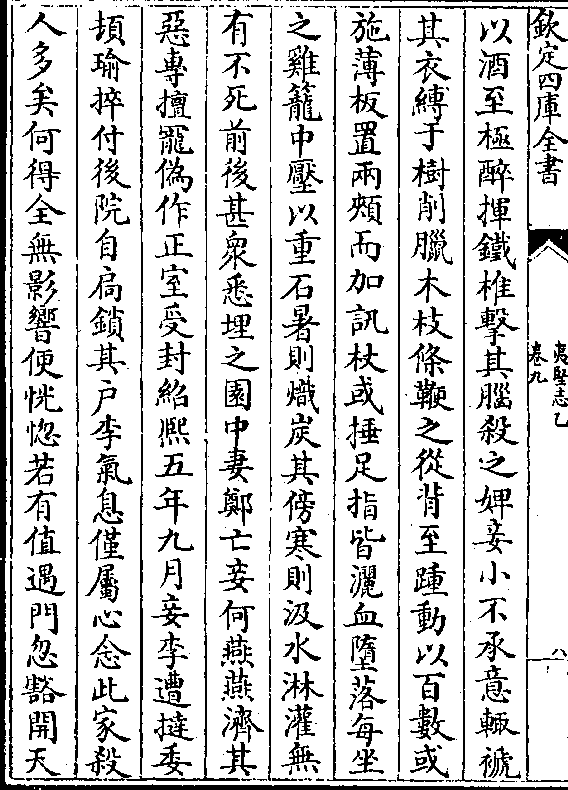 欽定四庫全書
夷堅志乙
卷九
八
以酒至極醉揮鐵椎擊其腦殺之婢妾小不承意輙褫
其衣縛于樹削臘木枝條鞭之從背至踵動以百數或
施薄板置兩頰而加訊杖或捶足指皆灑血墮落每坐
之雞籠中壓以重石暑則熾炭其傍寒則汲水淋灌無
有不死前後甚衆悉埋之園中妻鄭亡妾何燕燕濟其
惡專擅寵偽作正室受封紹熙五年九月妾李遭撻委
頓瑜捽付後院自扃鎖其户李氣息僅屬心念此家殺
人多矣何得全無影響便恍惚若有值遇門忽豁開天